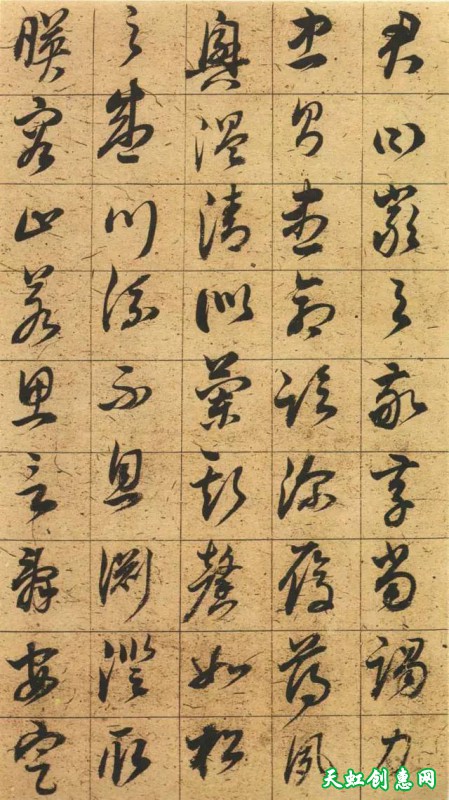 君曰嚴与敬孝當竭力
忠則盡命臨深履薄夙
興溫清似蘭斯馨如松
之盛川流不息淵澄取
暎容止若思言辭安定
天虹创意网